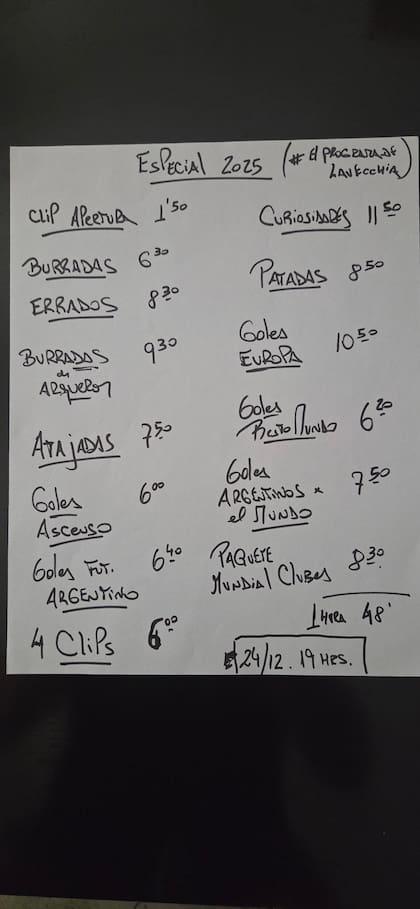 ESPECIAL 2025 (# El PROGRAMA DE
LAVECCHIA)
CLIP APERTURA 1'50
BURRADAS 6 30
ERRADOS 8 30
BURRADAS 9 30
de
ARQUEROS
ATAJADAS 7 50
Goles 6 00
ASCENSO
Goles FUT. 6 40
ARGENTINO
4 CLIPS 6 00
CURIOSIDADES 11 50
PATADAS 8 50
Goles 10 50
EUROPA
Goles 6 20
Resto Mundo
Goles 7 50
ARGENTINOS x
el MUNDO
PAQUETE 8 30
Mundial Clubes
1 HORA 48'
24/12. 19 HRS.